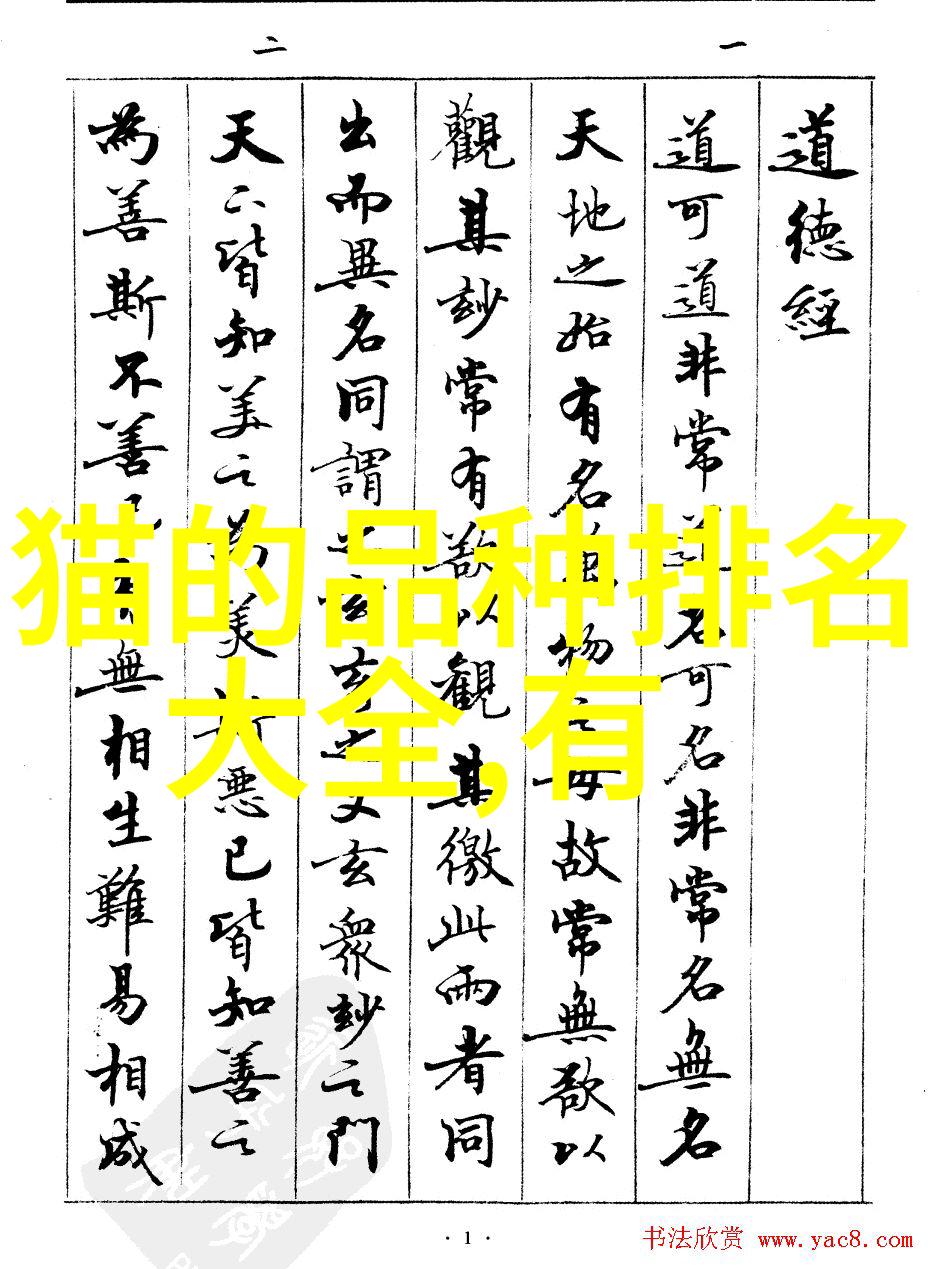 一
二
道德經
道可道非常道名可名非常名無名
天地之始有名萬物之母故常無欲以
觀其玅常有欲以觀其徼此兩者同
出而異名同謂之玄玄之又玄衆玅之門
天下皆知美之为美斯惡已皆知善之
為善斯不善已有無相生難易相成
猫的品种排名
大全,有
·1·
书法欣赏 www.yac8.com